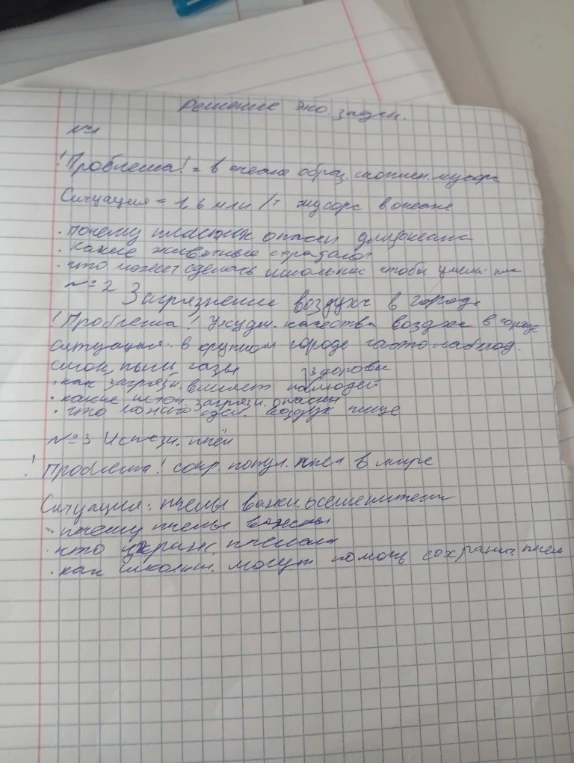 Решение эко задач.
№1
! Проблема! = в океане образ. скоплен. мусора
Ситуация = 1,6 млн/т мусора в океане
· Почему пластик опасен для океана
· Какие животные страдают
· что может сделать школьник чтобы уменьш.
№2 Загрязнение воздуха в городе
! Проблема! Ухудш. качества воздуха в городе
ситуация. в крупном городе часто наблюд.
смог, пыль, газы
здоровье
· как загрязн. влияет на людей
· какие источ. загрязн. опасны
· что можно сдел. воздух чище
№3 Исчезн. пчёл
! Проблема! сокр. попул. пчел в мире
Ситуация. пчелы важн. опылители
· почему пчелы важны
· что пчелам
· как школьн. могут помочь сохранить пчел